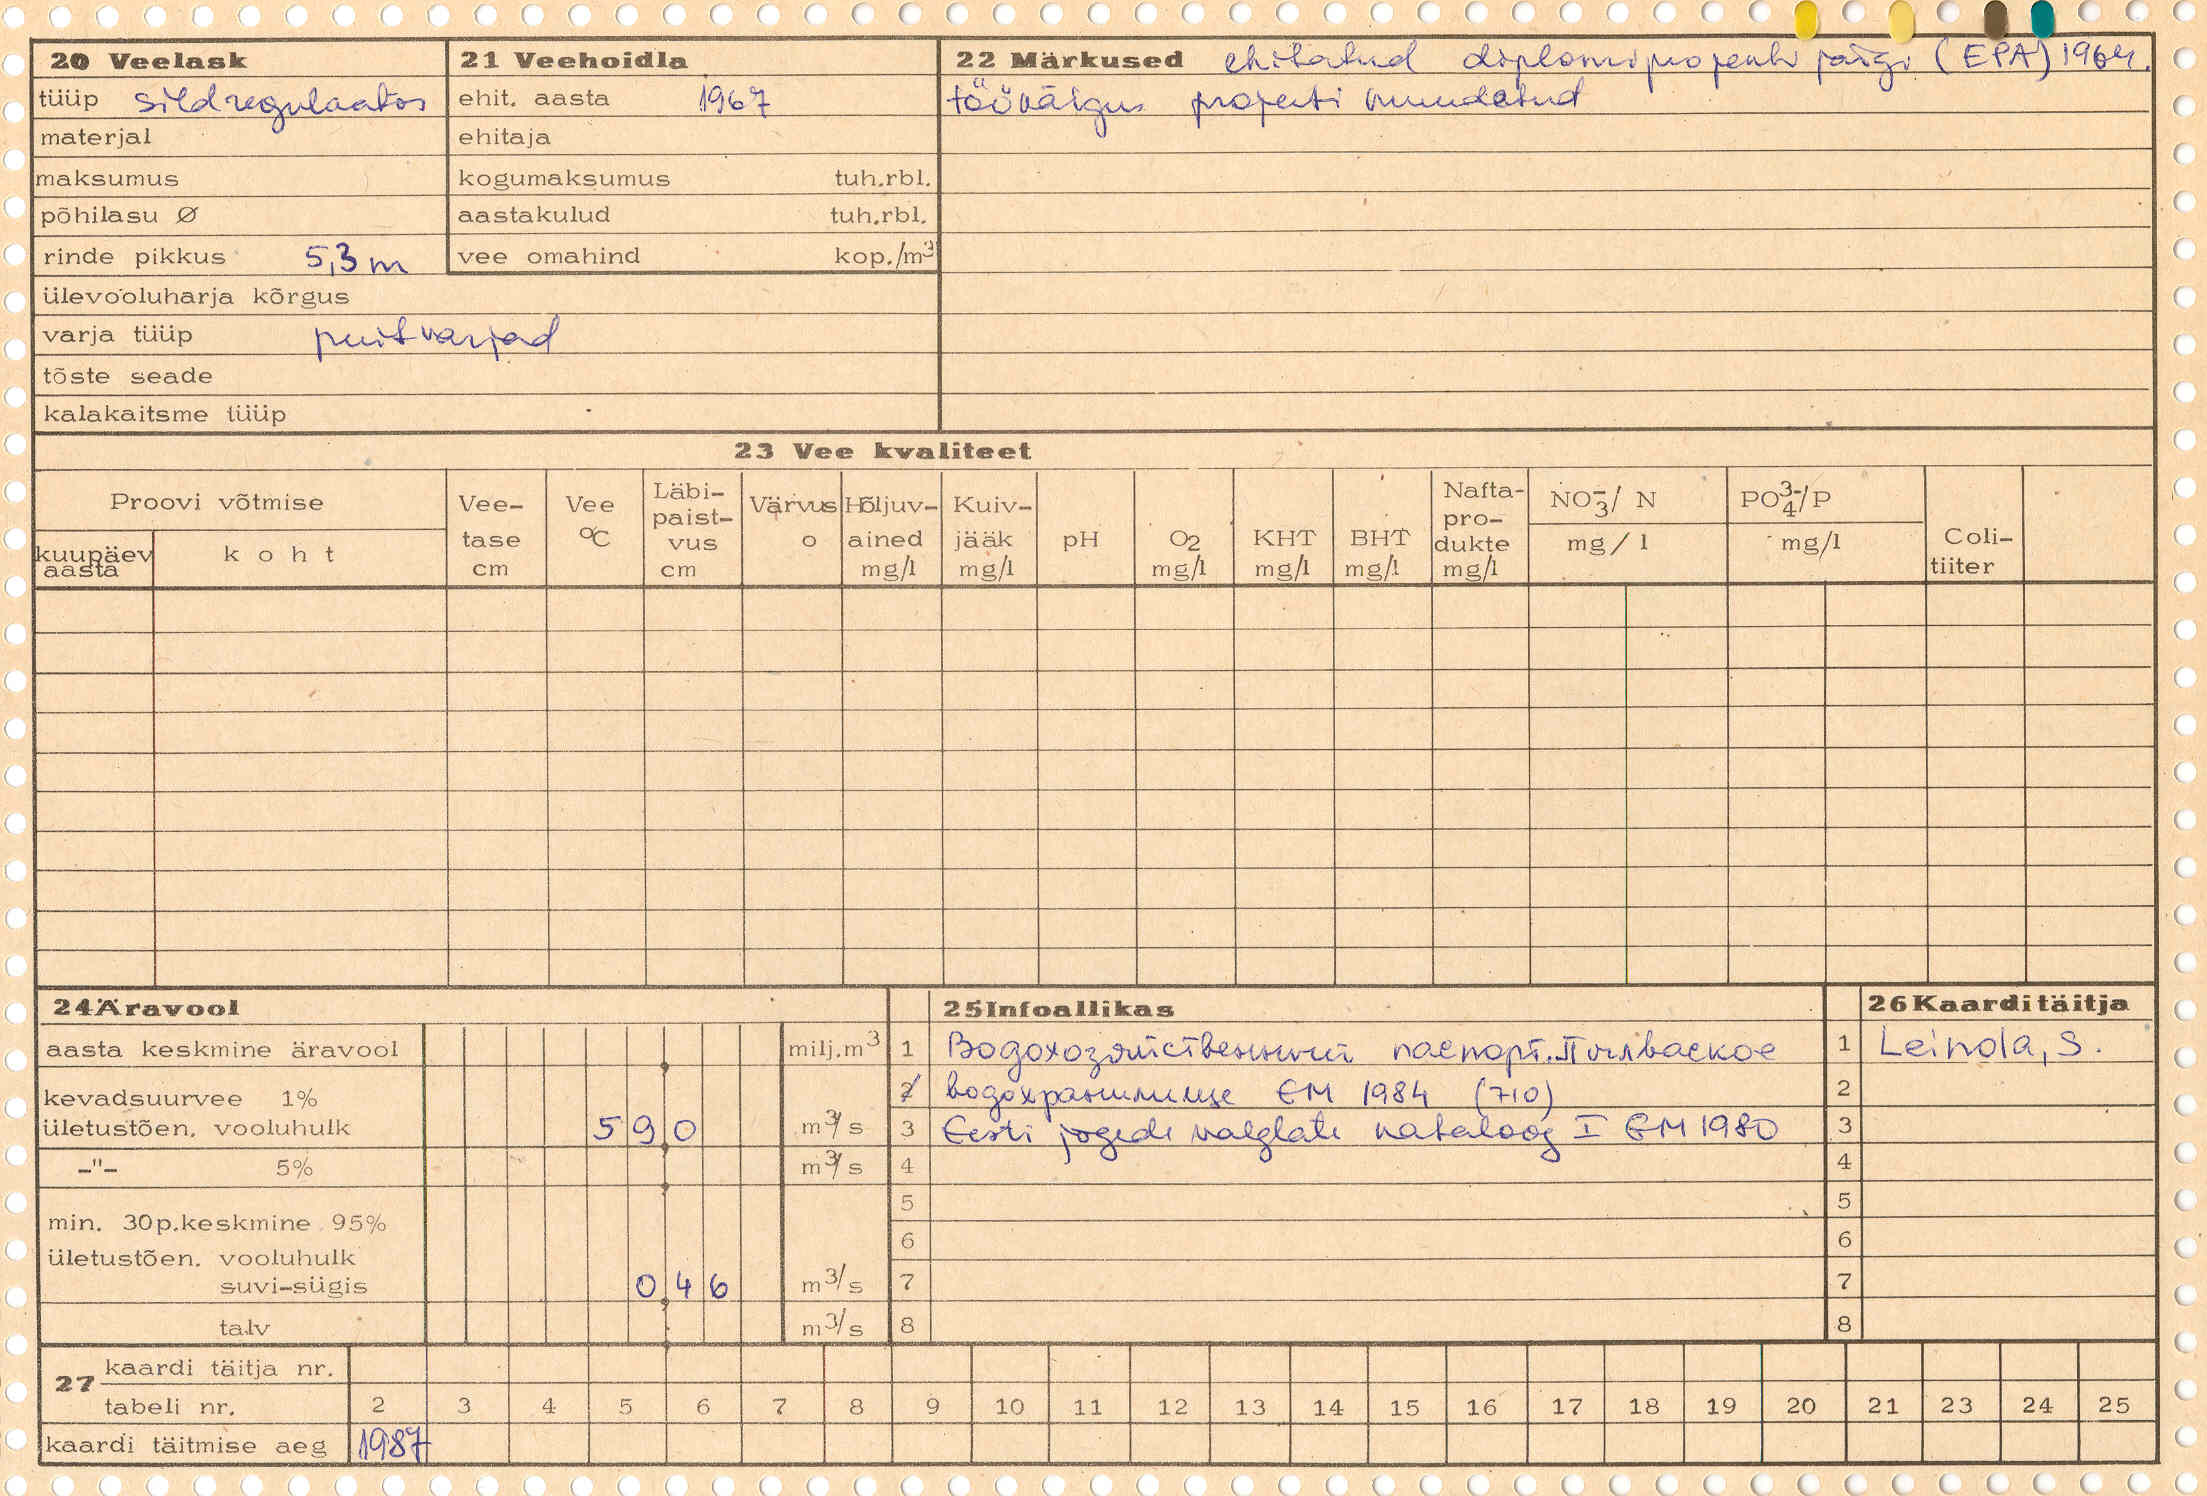 20 Veelask
tüüp sildregulaator
materjal
maksumus
põhilasu Ø
rinde pikkus 5,3 m
ülevooluharja kõrgus
varja tüüp puitvarjad
tõste seade
kalakaitsme tüüp
21 Veehoidla
ehit. aasta 1967
ehitaja
kogumaksumus tuh.rbl.
aastakulud tuh.rbl.
vee omahind kop./m³
22 Märkused ehitatud diplomiprojekti järgi (EPA) 1964.
töövälgus projekti muudetud
23 Vee kvaliteet
Proovi võtmise
kuupäev aasta
koht
Vee-tase cm
Vee °C
Läbi-paist-vus cm
Värvus o
Hõljuv-ained mg/l
Kuiv-jääk mg/l
pH
O₂ mg/l
KHT mg/l
BHT mg/l
Nafta-pro-dukte mg/l
NO₃⁻/ N mg/l
PO₄³⁻/P mg/l
Coli-tiiter
24 Äravool
aasta keskmine äravool milj.m³
kevadsuurvee 1%
ületustõen. vooluhulk 590 m³/s
-"- 5% m³/s
min. 30p.keskmine 95%
ületustõen. vooluhulk
suvi-sügis 046 m³/s
talv m³/s
25 Infoallikas
1 Водохозяйственный паспорт.
2 водохранилище ЕМ 1984 (710)
3 Eesti jogede valglate kataloog I EM 1980
4
5
6
7
8
26 Kaarditäitja
1 Leinola, S.
2
3
4
5
6
7
8
27 kaardi täitja nr.
tabeli nr. 2 3 4 5 6 7 8 9 10 11 12 13 14 15 16 17 18 19 20 21 23 24 25
kaardi täitmise aeg 1987